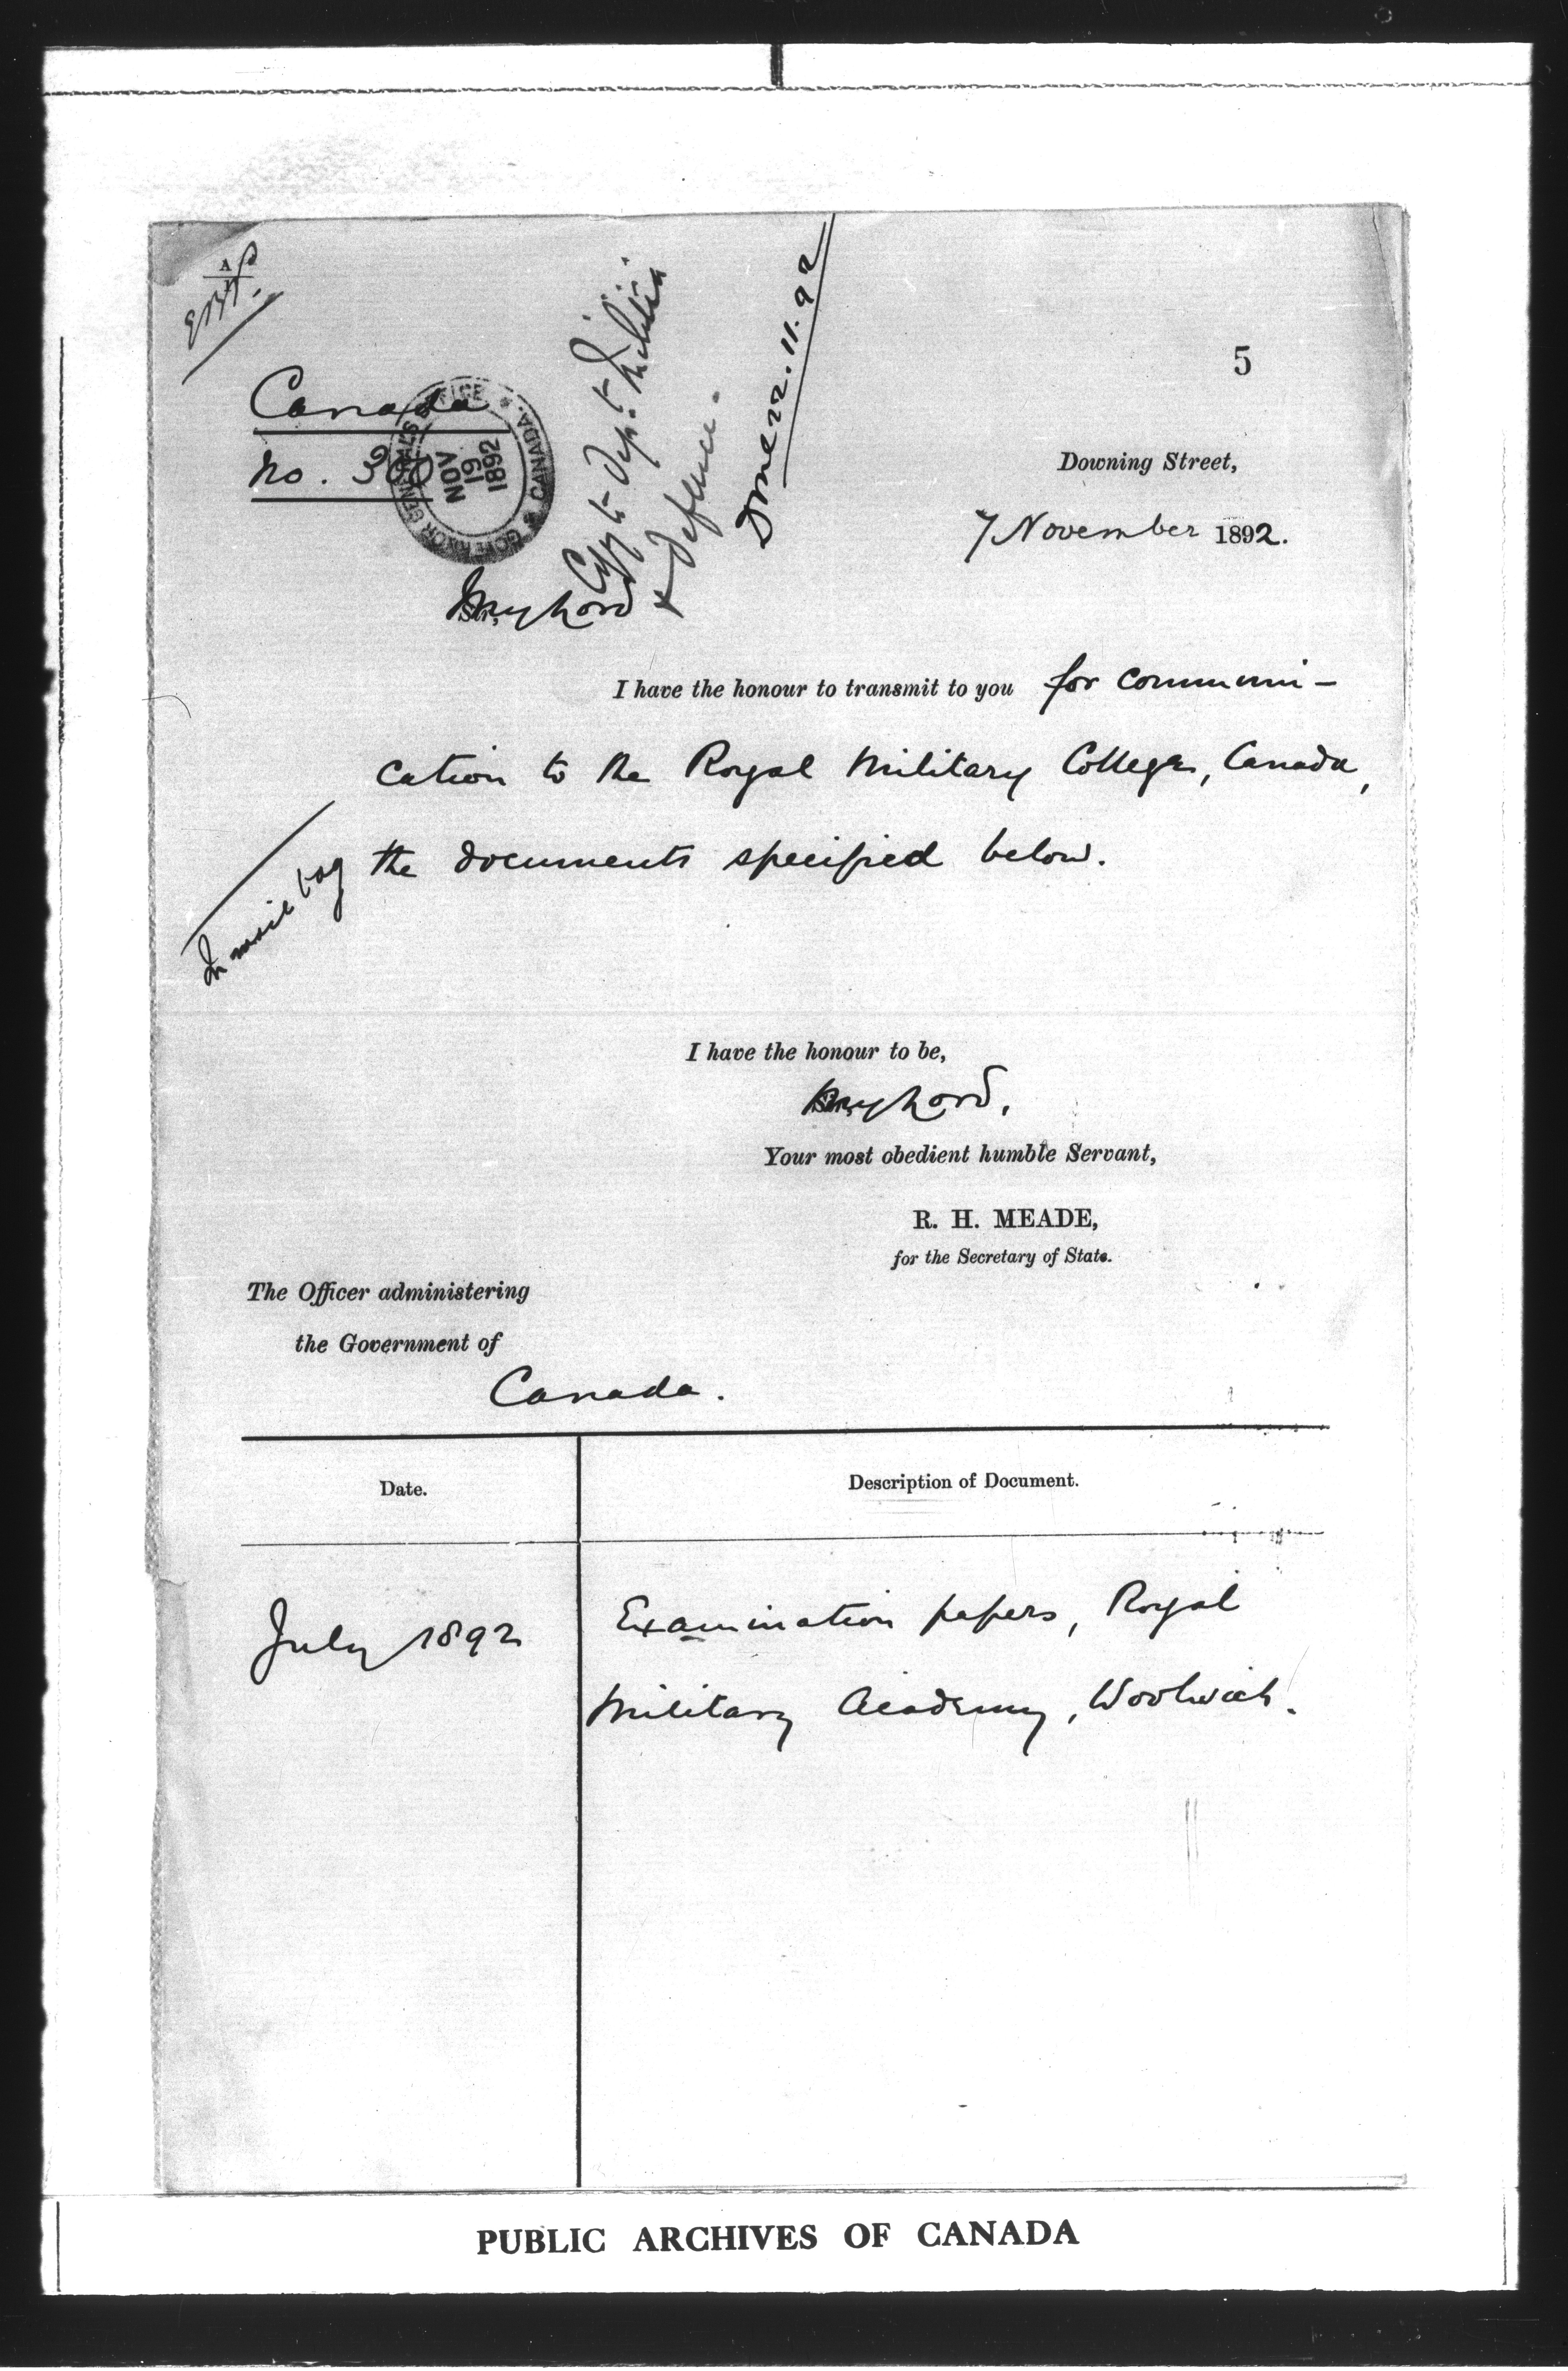 A
5
Canada
No. 300
GOVERNOR GENERAL'S OFFICE
CANADA
NOV
19
1892
Copy to Dept. Militia
& Defence.
Done 22.11.92
Downing Street,
7 November 1892.
My Lord
I have the honour to transmit to you for communi-
cation to the Royal Military College, Canada,
the documents specified below.
In mail bag
I have the honour to be,
My Lord,
Your most obedient humble Servant,
R. H. MEADE,
for the Secretary of State.
The Officer administering
the Government of
Canada.
Date.
Description of Document.
July 1892
Examination papers, Royal
Military Academy, Woolwich.
PUBLIC ARCHIVES OF CANADA